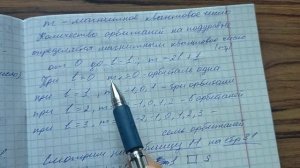 m - магнитное квантовое число
Количество орбиталей на подуровне
определяется магнитным квантовым числом
от 0 до l-1, m = 2l+1
При l=0 m=0 - орбиталь одна
при l=1, m= -1,0,1 - три орбитали
при l=2, m= -1,0,1,2 - 5 орбиталей
при l=3, m= -2,-1,0,1,2,3
семь орбиталей
Смотрим таблицу 11 на стр 31